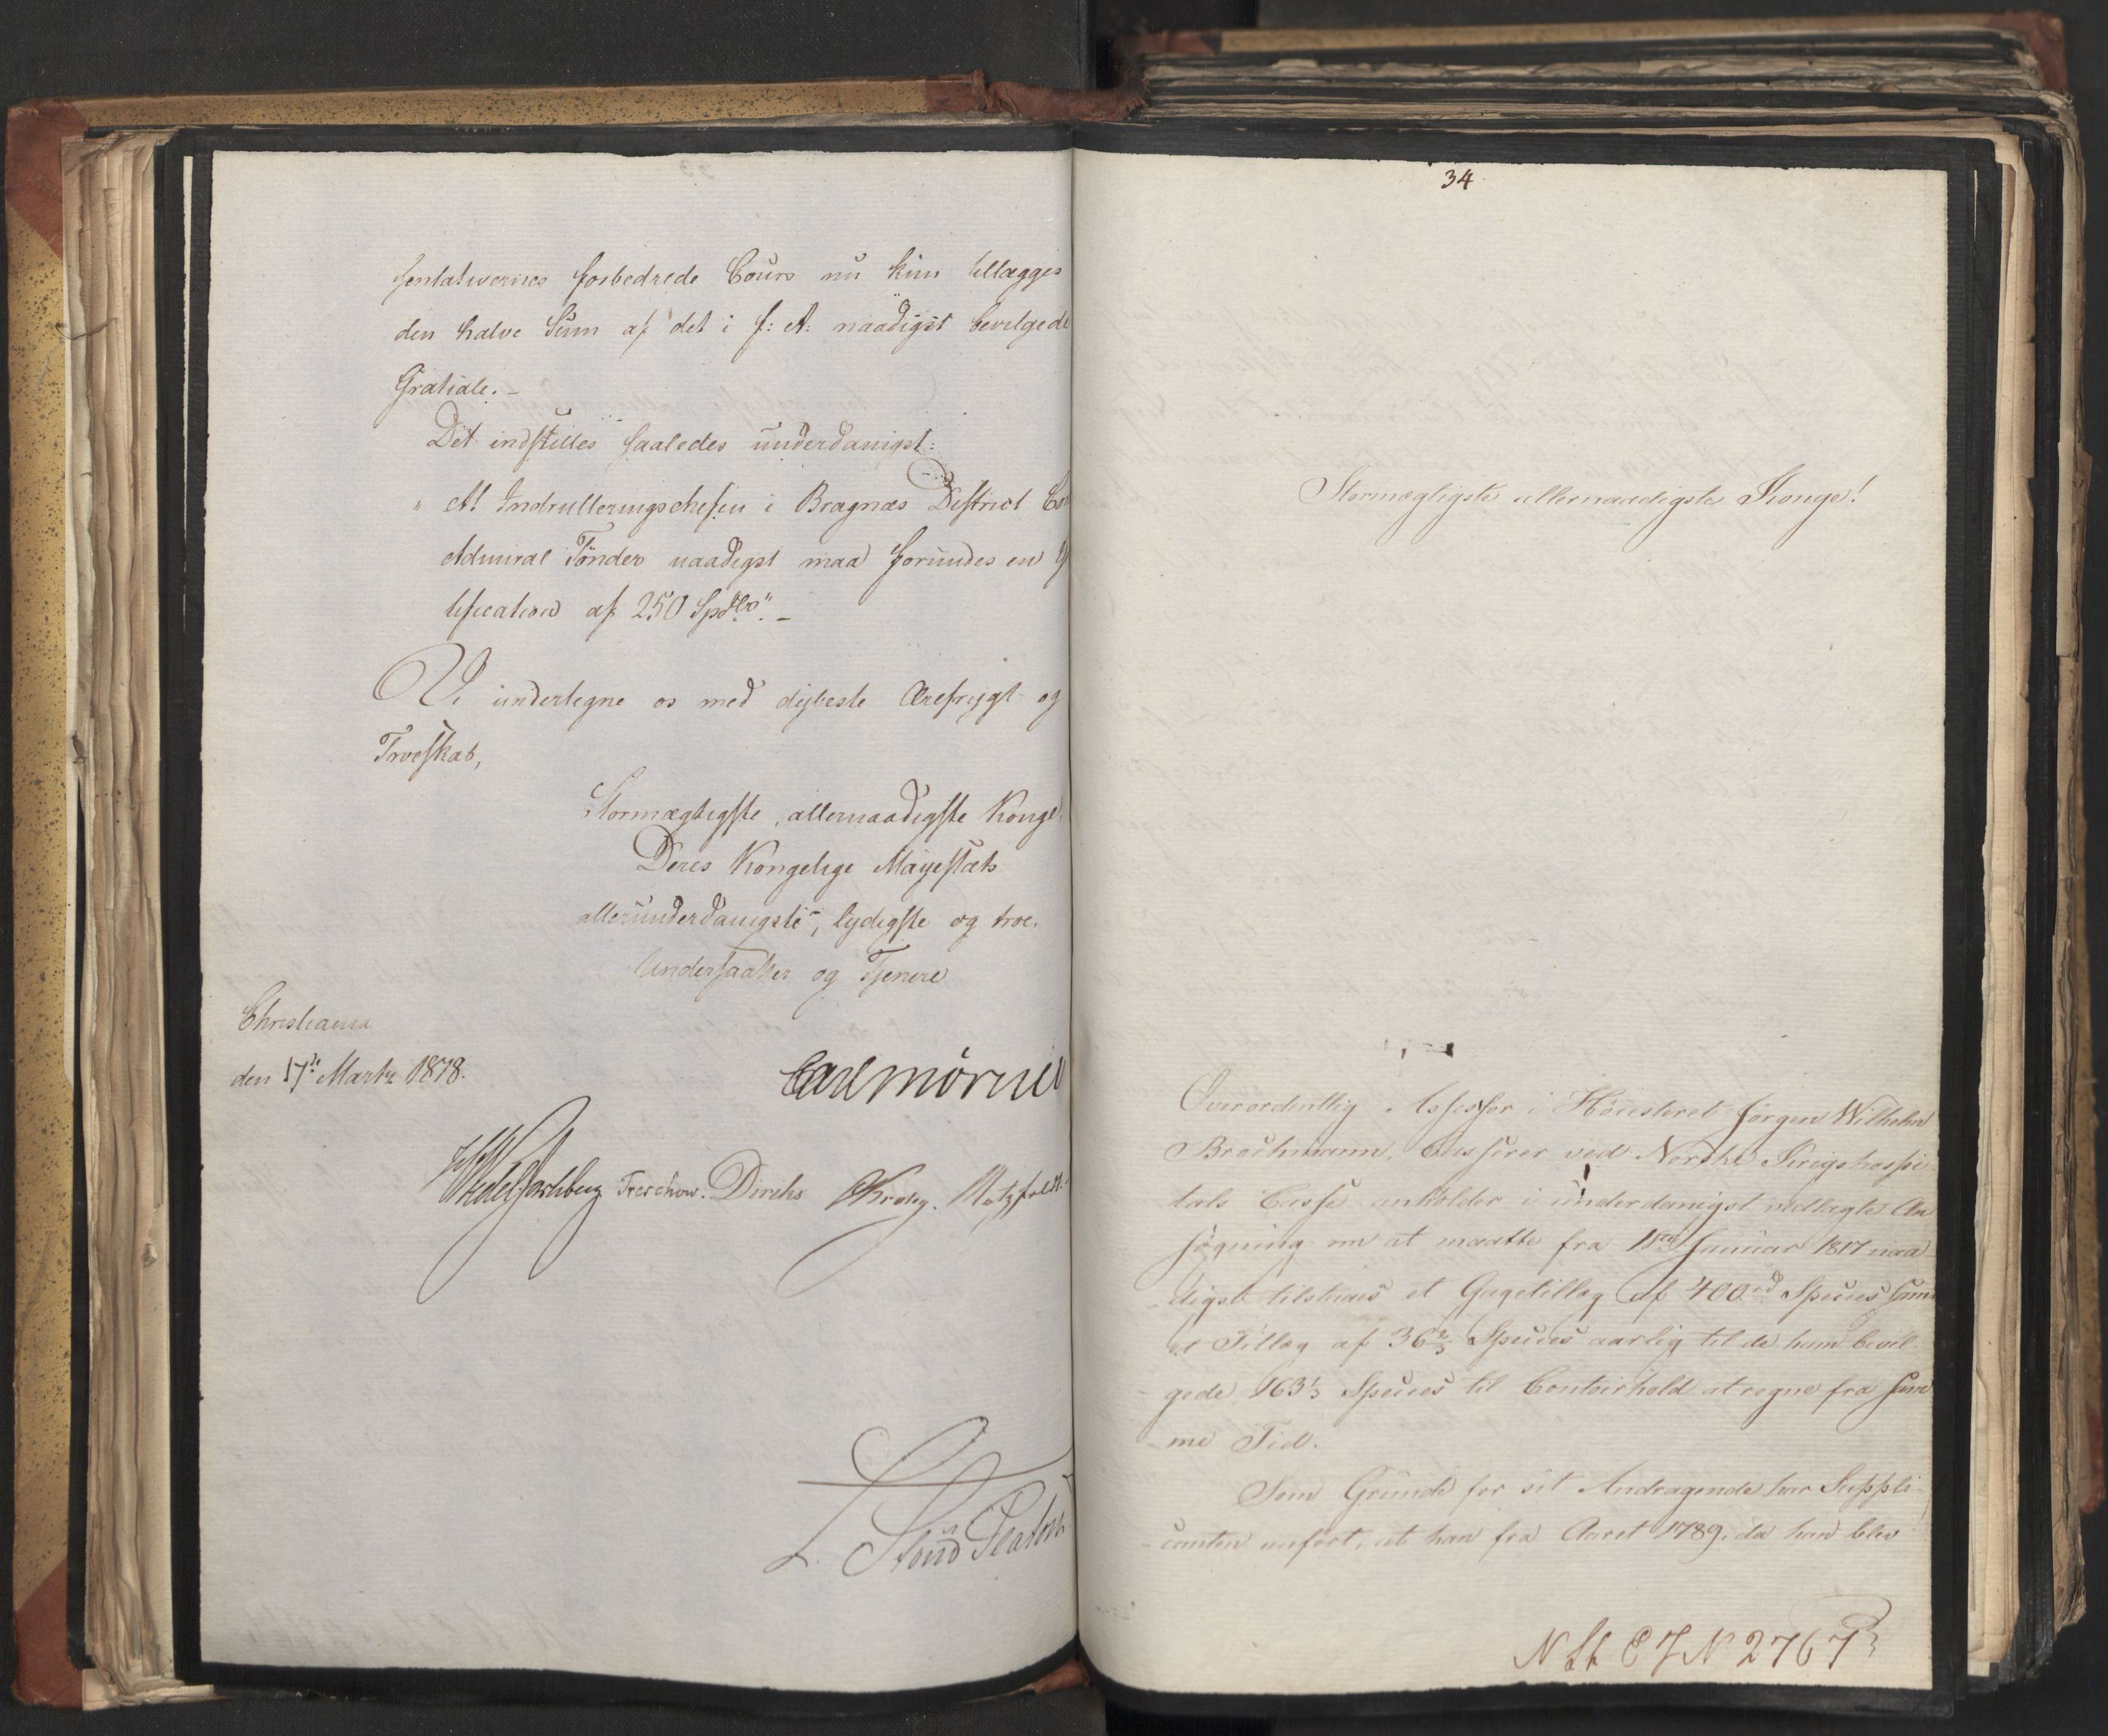 sentativernes forbedrede Cours nu kun tillægges
den halve Sum af det i f: A: naadigst bevilgede
Gratiale.-
Det indstilles saaledes underdanigst:
" At Indrulleringschefen i Bragnæs District Co
Admiral Tønder naadigst maa forundes en G
tification af 250 Spdlr". -
Vi undertegne os med dybeste Ærefrygt og
Troeskab,
Stormægtigste, allernaadigste Konge!
Deres Kongelige Mayestæts
allerunderdanigste, lydigste og troe.
Undersaatter og Tjenere
Christiania
den 17de Martz 1818.
Carl Mörner
Wedel Jarlsberg Treschow. Diriks Krohg. Motzfeldt.
L. Stoud Platou
34
Stormægtigste allernaadigste Konge!
Overordentlig Assessor i Høiesteret Jørgen Wilhelm
Brochmann, Casserer ved Norske Krigshospi
tals Casse anholder i underdanigst vedlagte An
søgning om at maatte fra 1ste Januar 1817 naa
digst tilstaaes et Gagetillæg af 400rd Species samt
et Tillæg af 36 2/3 Species aarlig til de ham bevil
gede 163 1/3 Species til Contoirhold at regne fra sam
me Tid.
Som Grunde for sit Andragende har Suppli-
canten anført, at han fra Aaret 1789, da han blev
N 2767